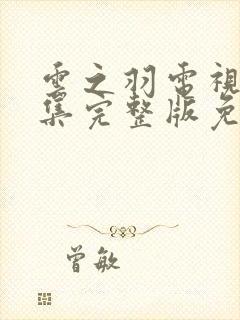 雲之羽電視
集完整版免
曾敏